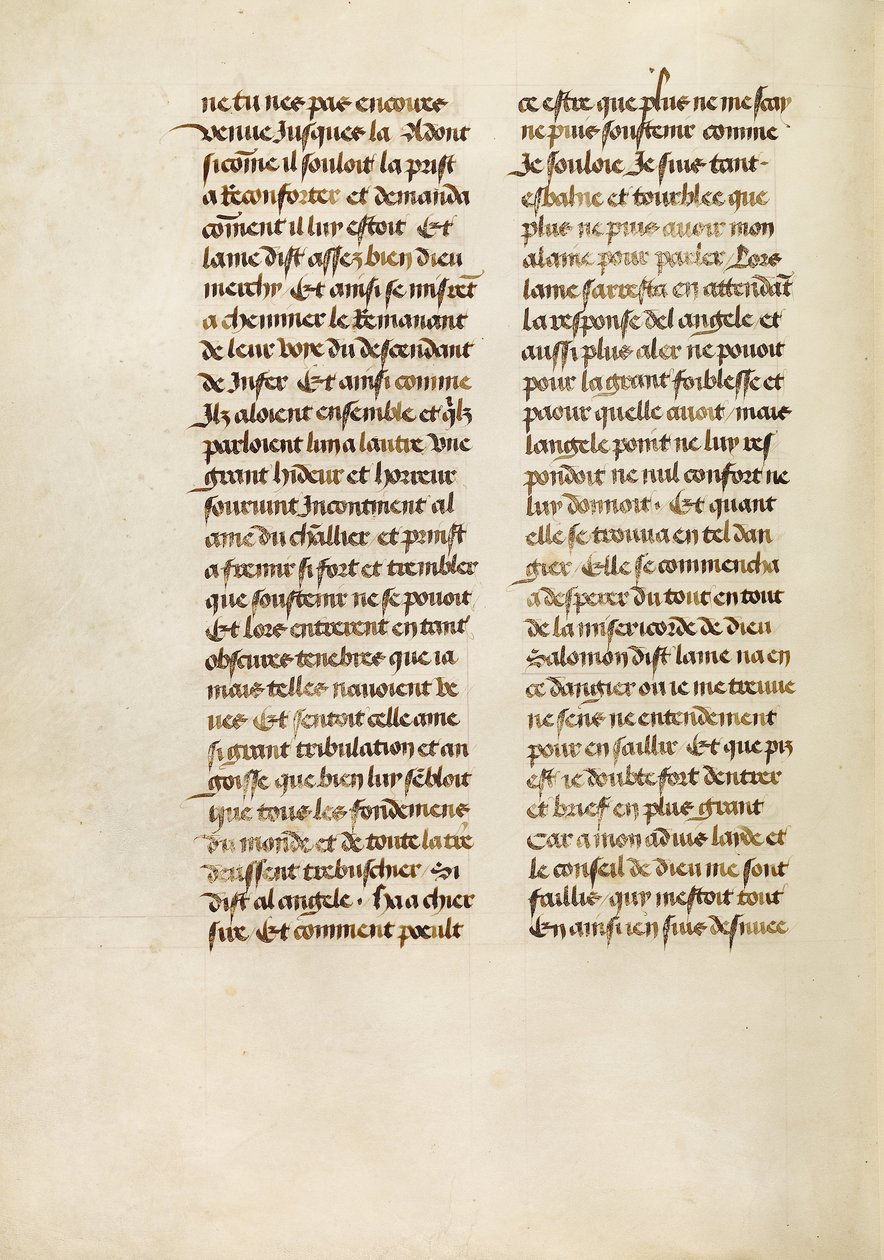 ne tu nes pas encores
venue Jusques la Adont
sicom̄e il souloit la prist
a Reconforter et demanda
com̄ent il luy estoit Et
lame dist assez bien dieu
merchy / Et ainsi se misrēt
a cheminer le Remanant
de leur voye du descendant
de Infer Et ainsi comme
Ilz aloient ensemble et q̄lz
parloient lun a lautre / vne
grant hideur et horreur
souruint Incontinent al
ame du chl̄lier / et prinst
a fremir si fort et trembler
que soustenir ne se pouoit /
Et lors entrerent en tant
obscures tenebres que ia
mais telles nauoient ve
ues Et sentoit celle ame
si grant tribulation et an
goisse que bien luy sēbloit
que tous les fondemens
du monde et de toute la tr̄e
deussent trebuschier / Si
dist al angele . Ha a chier
sire / Et comment poeult
ce estre que plus ne me scay
ne puis soustenir comme
Je souloie Je suis tant
esbahie et tourblee que
plus ne puis auoir mon
alaine pour parler / Lors
lame sarresta en attendāt
la response del angele / et
aussi plus aler ne pouoit
pour la grant foiblesse et
paour quelle auoit / mais
langele point ne luy res
pondoit ne nul confort ne
luy donnoit . Et quant
elle se trouua en tel dan
gier / Elle se commencha
a desperer du tout en tout
de la misericorde de dieu
Salomon dist lame na en
ce dangier ou ie me treuue
ne sens ne entendement
pour en saillir Et que piz
est ie doubte fort dentrer
et brief en plus grant
Car a mon aduis laide et
le conseil de dieu me sont
faillis / quy mestoit tout
En ainsi ien suis desnuee